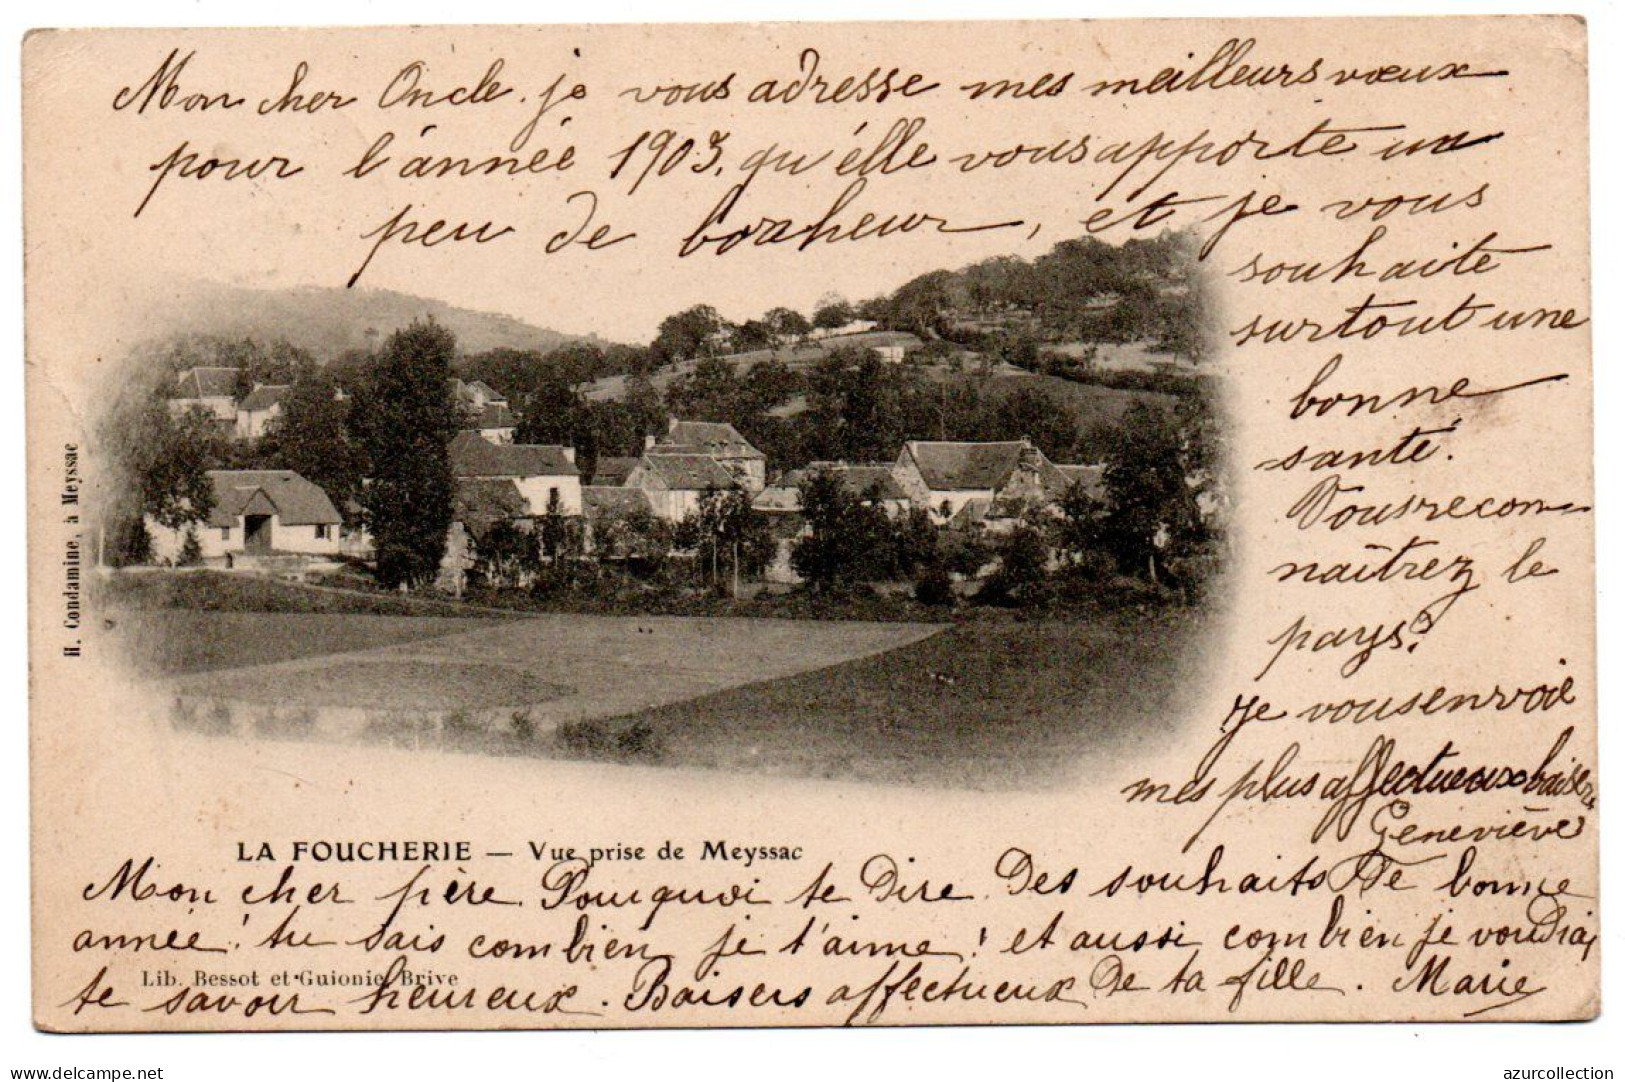 Mon cher Oncle. je vous adresse mes meilleurs vœux
pour l'année 1903. qu'élle vous apporte un
peu de bonheur, et je vous
souhaite
surtout une
bonne
santé.
Vous recon-
naîtrez le
pays?
Je vous envoie
mes plus affectueux baisers
Geneviève
H. Condamine, à Meyssac
LA FOUCHERIE — Vue prise de Meyssac
Mon cher père. Pourquoi te dire des souhaits de bonne
année! tu sais combien je t'aime! et aussi combien je voudrais
Lib. Bessot et Guionie, Brive
te savoir heureux. Baisers affectueux de ta fille. Marie
www.delcampe.net
azurcollection